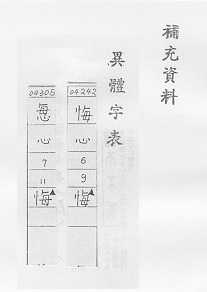 補充資料
異體字表
04242
悔
心
6
9
悔▲
04305
𢙓
心
7
11
悔▲